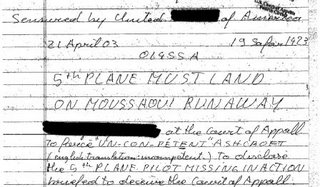 Censured by United of America
21 April 03 19 Safar 1423
OLESSA
5th PLANE MUST LAND
ON MOUSSAOUI RUNAWAY
at the Court of Appall
to force "UN-CON-PETENT" ASHCROFT
(english translation: incompetent.) to disclose
the 5th PLANE PILOT MISSING IN ACTION
to deceive the Court of Appall.